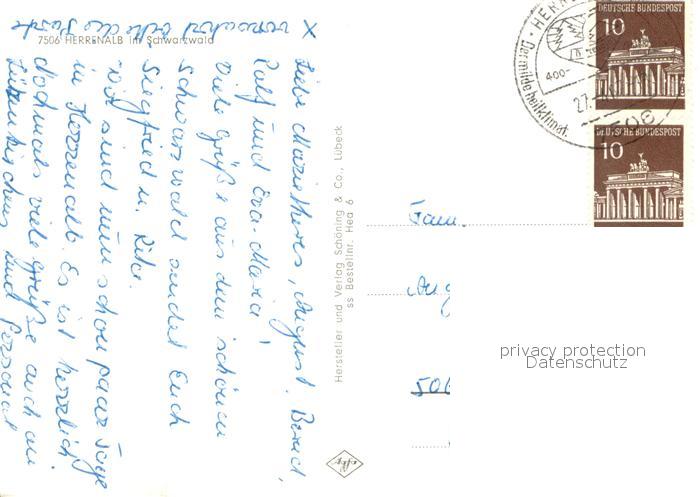 X
7506 HERRENALB im Schwarzwald
Liebe Marietheres, August, Bernd,
Ralf und Eva-Maria!
Viele Grüße aus dem schönen
Schwarzwald sendet Euch
Siegfried u. Rita.
Wir sind nun schon paar Tage
in Herrenalb. Es ist herrlich
Nochmals viele Grüße auch an
und Personal
Hersteller und Verlag Schöning & Co., Lübeck
ss Bestellnr. Hea 6
agfa
DEUTSCHE BUNDESPOST
10
DEUTSCHE BUNDESPOST
10
HERR
Der milde heilklimat.
400-
27.
7506
Fam.
Aug
506
privacy protection
Datenschutz